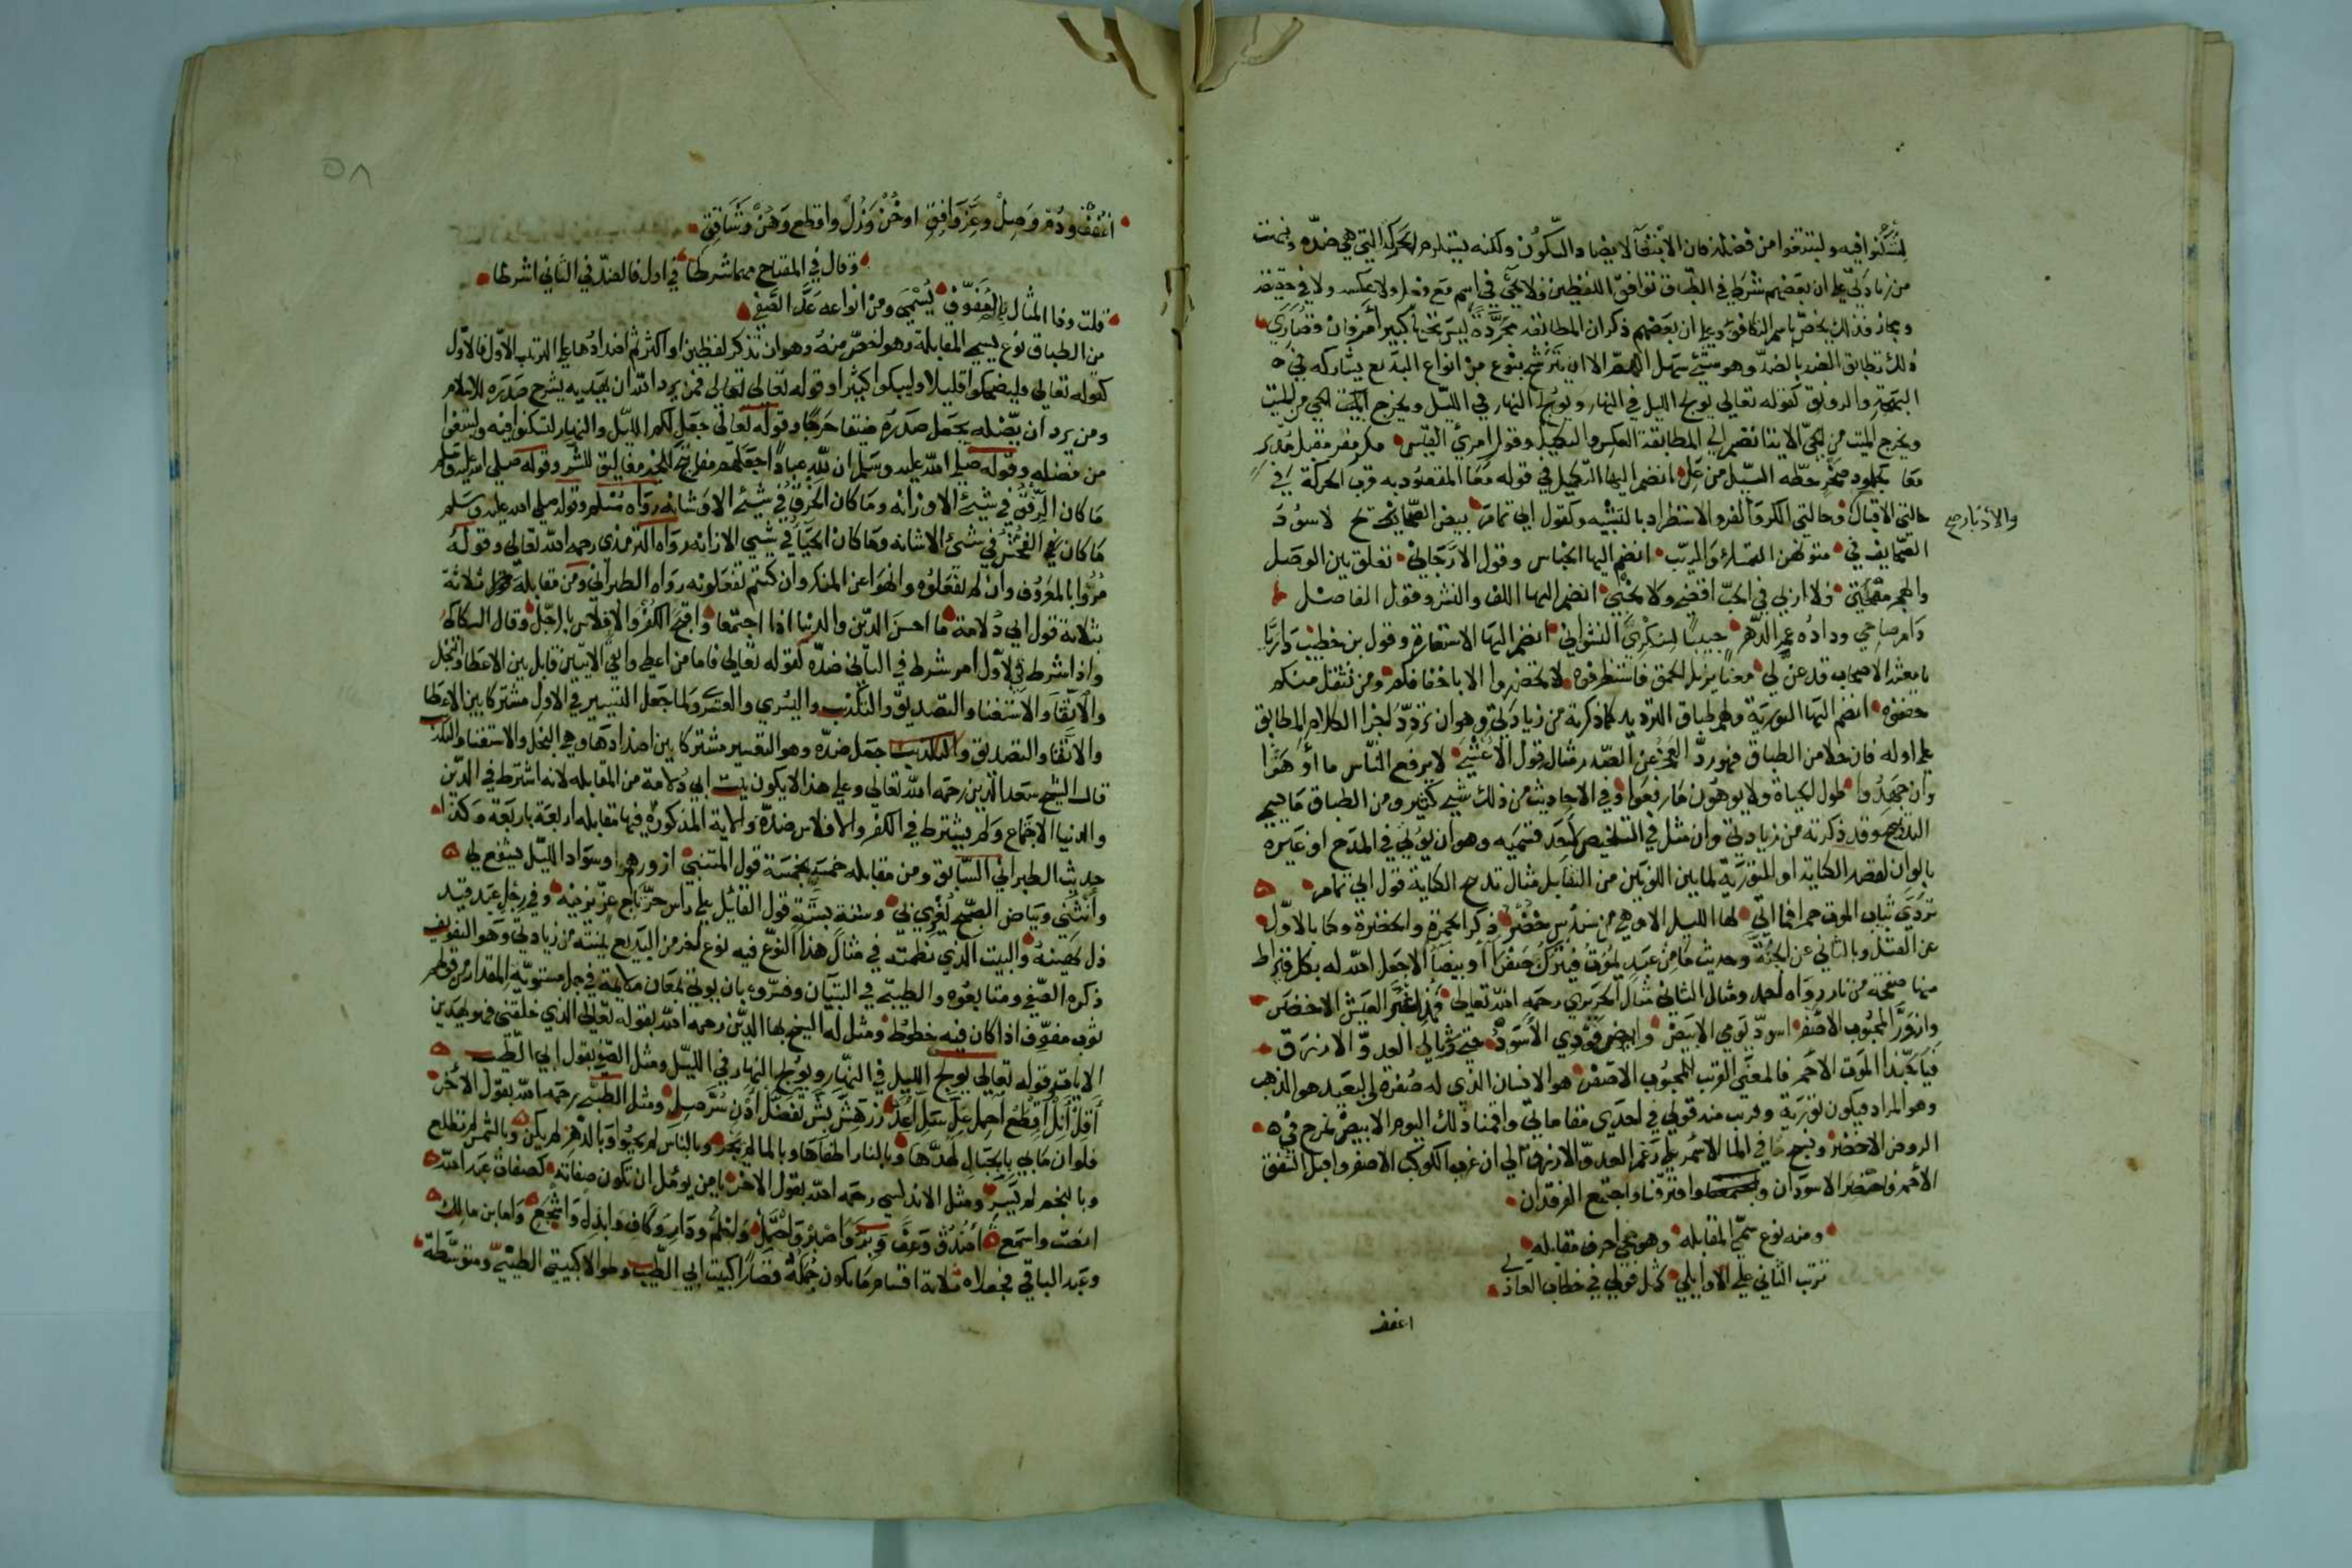 لتسكنوا فيه ولتبتغوا من فضله فان الابتغآء لا يضاد السكون ولكنه يستلزم الحركة التي هي ضده ونبهت
من زيادتي على ان بعضهم شرط في الطباق توافق اللفظين فلا يجيء في اسم مع فعل ولا عكسه ولا في حقيقة
ومجاز فذلك يخص باسم التكافؤ وعلى ان بعضهم ذكر ان المطابقة مجردة ليس تحتها كبير أمر فان قصارى
ذلك تطابق الضد بالضد وهو شيء سهل اللهم الا ان تترشح بنوع من انواع البديع يشاركه في
البهجة والرونق كقوله تعالى يولج الليل في النهار ويولج النهار في الليل ويخرج الحي من الميت
ويخرج الميت من الحي الاية انضم الى المطابقة العكس والتكميل وقول امرئ القيس مكر مفر مقبل مدبر
معا كجلمود صخر حطه السيل من عل انضم اليها التكميل في قوله معا المقصود به قرب الحركة في
حالتي الاقبال وحالتي الكر والفر والاستطراد بالتشبيه وكقول ابي تمام بيض الصفائح لا سود
والأدبار صح
الصحايف في متونهن جلاء الشك والريب انضم اليها الجناس وقول الارجاني تعلق بين الوصل
والهجر مهجتي فلا اربي في الحب اقضي ولا نحبي انضم اليها اللف والنشر وقول الفاضل
دامر صاحي وداده عمر الدهر حبيبا لسكري النشوان انضم اليها الاستعارة وقول بن خطيب داريا
يا معشر الاصحاب قد عن لي معنا يزيل الحمق فاستظرفوه لا تحضروا الا باخفافكم ومن تثقل منكم
خففوه انضم اليها التورية ولهم طباق الترديد كما ذكرته من زيادتي وهو ان ترد آخر الكلام المطابق
على اوله فان خلا من الطباق فهو رد العجز عن الصدر مثاله قول الأعشى لا يرقع الناس ما أوهوا
وان جهدوا طول الحياة ولا يوهون ما رقعوا وفي الاحاديث من ذلك شيء كثير ومن الطباق ما يسمى
التدبيج وقد ذكرته من زيادتي وان مثل في التلخيص لبعد قسميه وهو ان يؤتى في المدح او غيره
بالوان لقصد الكناية او التورية لما بين اللونين من التقابل مثال تدبيج الكناية قول ابي تمام
تردى ثياب الموت حمرا فما اتى لها الليل الا وهي من سندس خضر ذكر الحمرة والخضرة وكنا بالاول
عن القتل وبالثاني عن الجنة وحديث ما من عبد يموت فيترك صفرا أو بيضا الا جعل الله له بكل قيراط
منها صفحة من نار رواه احمد ومثال الثاني مثال الحريري رحمه الله تعالى فمذ اغبر العيش الاخضر
وازور المحبوب الاصفر اسود يومي الابيض وابيض فودي الأسود حتى رثى لي العدو الازرق
فيا حبذا الموت الاحمر فالمعنى القريب للمحبوب الاصفر هو الانسان الذي له صفرة والبعيد هو الذهب
وهو المراد فيكون تورية وقريب منه قولي في احدى مقاماتي واقمنا ذلك اليوم الابيض نمرح في
الروض الاخضر ونسبح في الما الاسمر على رغم العدو الازرق الى ان غرب الكوكب الاصفر واقبل الشفق
الأحمر واحتضر الاسودان وافترقنا واجتمع الفرقدان
ومنه نوع سمي المقابله وهو مجي احرف مقابله
ترتب الثاني على الاوايلي كمثل قولي في خطاب العاذلي
اعفف

٥٨
اعفف ودم وصل وعز وافق او خن وزل واقطع وهن وشاقق
وقال في المفتاح مهما شرطا في اول فالضد في الثاني اشرطا
قلت وذا المثال بالمفوف يسمى ومن انواعه عد الصفي
من الطباق نوع يسمى المقابلة وهو اخص منه وهو ان تذكر لفظين او اكثر ثم اضدادها على الترتيب الأول فالأول
كقوله تعالى فليضحكوا قليلا وليبكوا كثيرا وقوله تعالى فمن يرد الله ان يهديه يشرح صدره للاسلام
ومن يرد ان يضله يجعل صدره ضيقا حرجا وقوله تعالى جعل لكم الليل والنهار لتسكنوا فيه ولتبتغوا
من فضله وقوله صلى الله عليه وسلم ان لله عبادا اجعلهم مفاتيح للخير مغاليق للشر وقوله صلى الله عليه وسلم
ما كان الرفق في شيء الا زانه وما كان الخرق في شيء الا شانه رواه مسلم وقوله صلى الله عليه وسلم
ما كان الفحش في شيء الا شانه وما كان الحياء في شيء الا زانه رواه الترمذي رحمه الله تعالى وقوله
مروا بالمعروف وان لم تفعلوه وانهوا عن المنكر وان كنتم تفعلونه رواه الطبراني ومن مقابلة ثلاثة
بثلاثة قول ابي دلامة ما احسن الدين والدنيا اذا اجتمعا واقبح الكفر والافلاس بالرجل وقال السكاكي
واذا شرط في الأول امر شرط في الثاني ضده كقوله تعالى فاما من اعطى واتقى الايتين قابل بين الاعطا والبخل
والاتقا والاستغنا والتصديق والتكذيب واليسرى والعسرى ولما جعل التيسير في الاول مشتركا بين الاعطا
والاتقا والتصديق والتكذيب جعل ضده وهو التعسير مشتركا بين اضدادها وهي البخل والاستغنا والتكذيب
قال الشيخ سعد الدين رحمه الله تعالى وعلى هذا لا يكون بيت ابي دلامة من المقابله لانه اشترط في الدين
والدنيا الاجتماع ولم يشترط في الكفر والافلاس ضده والاية المذكورة فيها مقابله اربعة باربعة وكذا
حديث الطبراني السابق ومن مقابله خمسة بخمسة قول المتنبي ازورهم وسواد الليل يشفع لي
وأنثني وبياض الصبح يغري بي وستة بستة قول القائل على رأس حر تاج عز يزينه وفي رجل عبد قيد
ذل يشينه والبيت الذي نظمته في مثال هذا النوع فيه نوع آخر من البديع بينته من زيادتي وهو التفويف
ذكره الصفي ومتابعوه والطيبي في التبيان وفسروه بان يؤتى بمعان متلايمة في جمل مستوية المقدار من قولهم
ثوب مفوف اذا كان فيه خطوط ومثل له الشيخ بها الدين رحمه الله بقوله تعالى الذي خلقني فهو يهدين
الايات وقوله تعالى يولج الليل في النهار ويولج النهار في الليل ومثل الصفي بقول ابي الطيب
أقل أنل أقطع احمل عل سل أعد زد هش بش تفضل ادن سر صل ومثل الطيبي رحمه الله بقول الآخر
فلو ان ما بي بالجبال لهدها وبالنار اطفاها وبالما لم يجر وبالناس لم يحيوا وبالدهر لم يكن وبالشمس لم تطلع
وبالنجم لم يسر ومثل الاندلسي رحمه الله بقول الاخر يا من يؤمل ان تكون صفاته كصفات عبد الله
انصت واسمع أصدق وعف وبر واصبر واحتمل واحلم ودار وكاف وابذل واشجع واما بن مالك
وعبد الباقي فجعلاه ثلاثة اقسام ما يكون جمله قصارا كبيت ابي الطيب وطوالا كبيتي الطيبي ومتوسطة